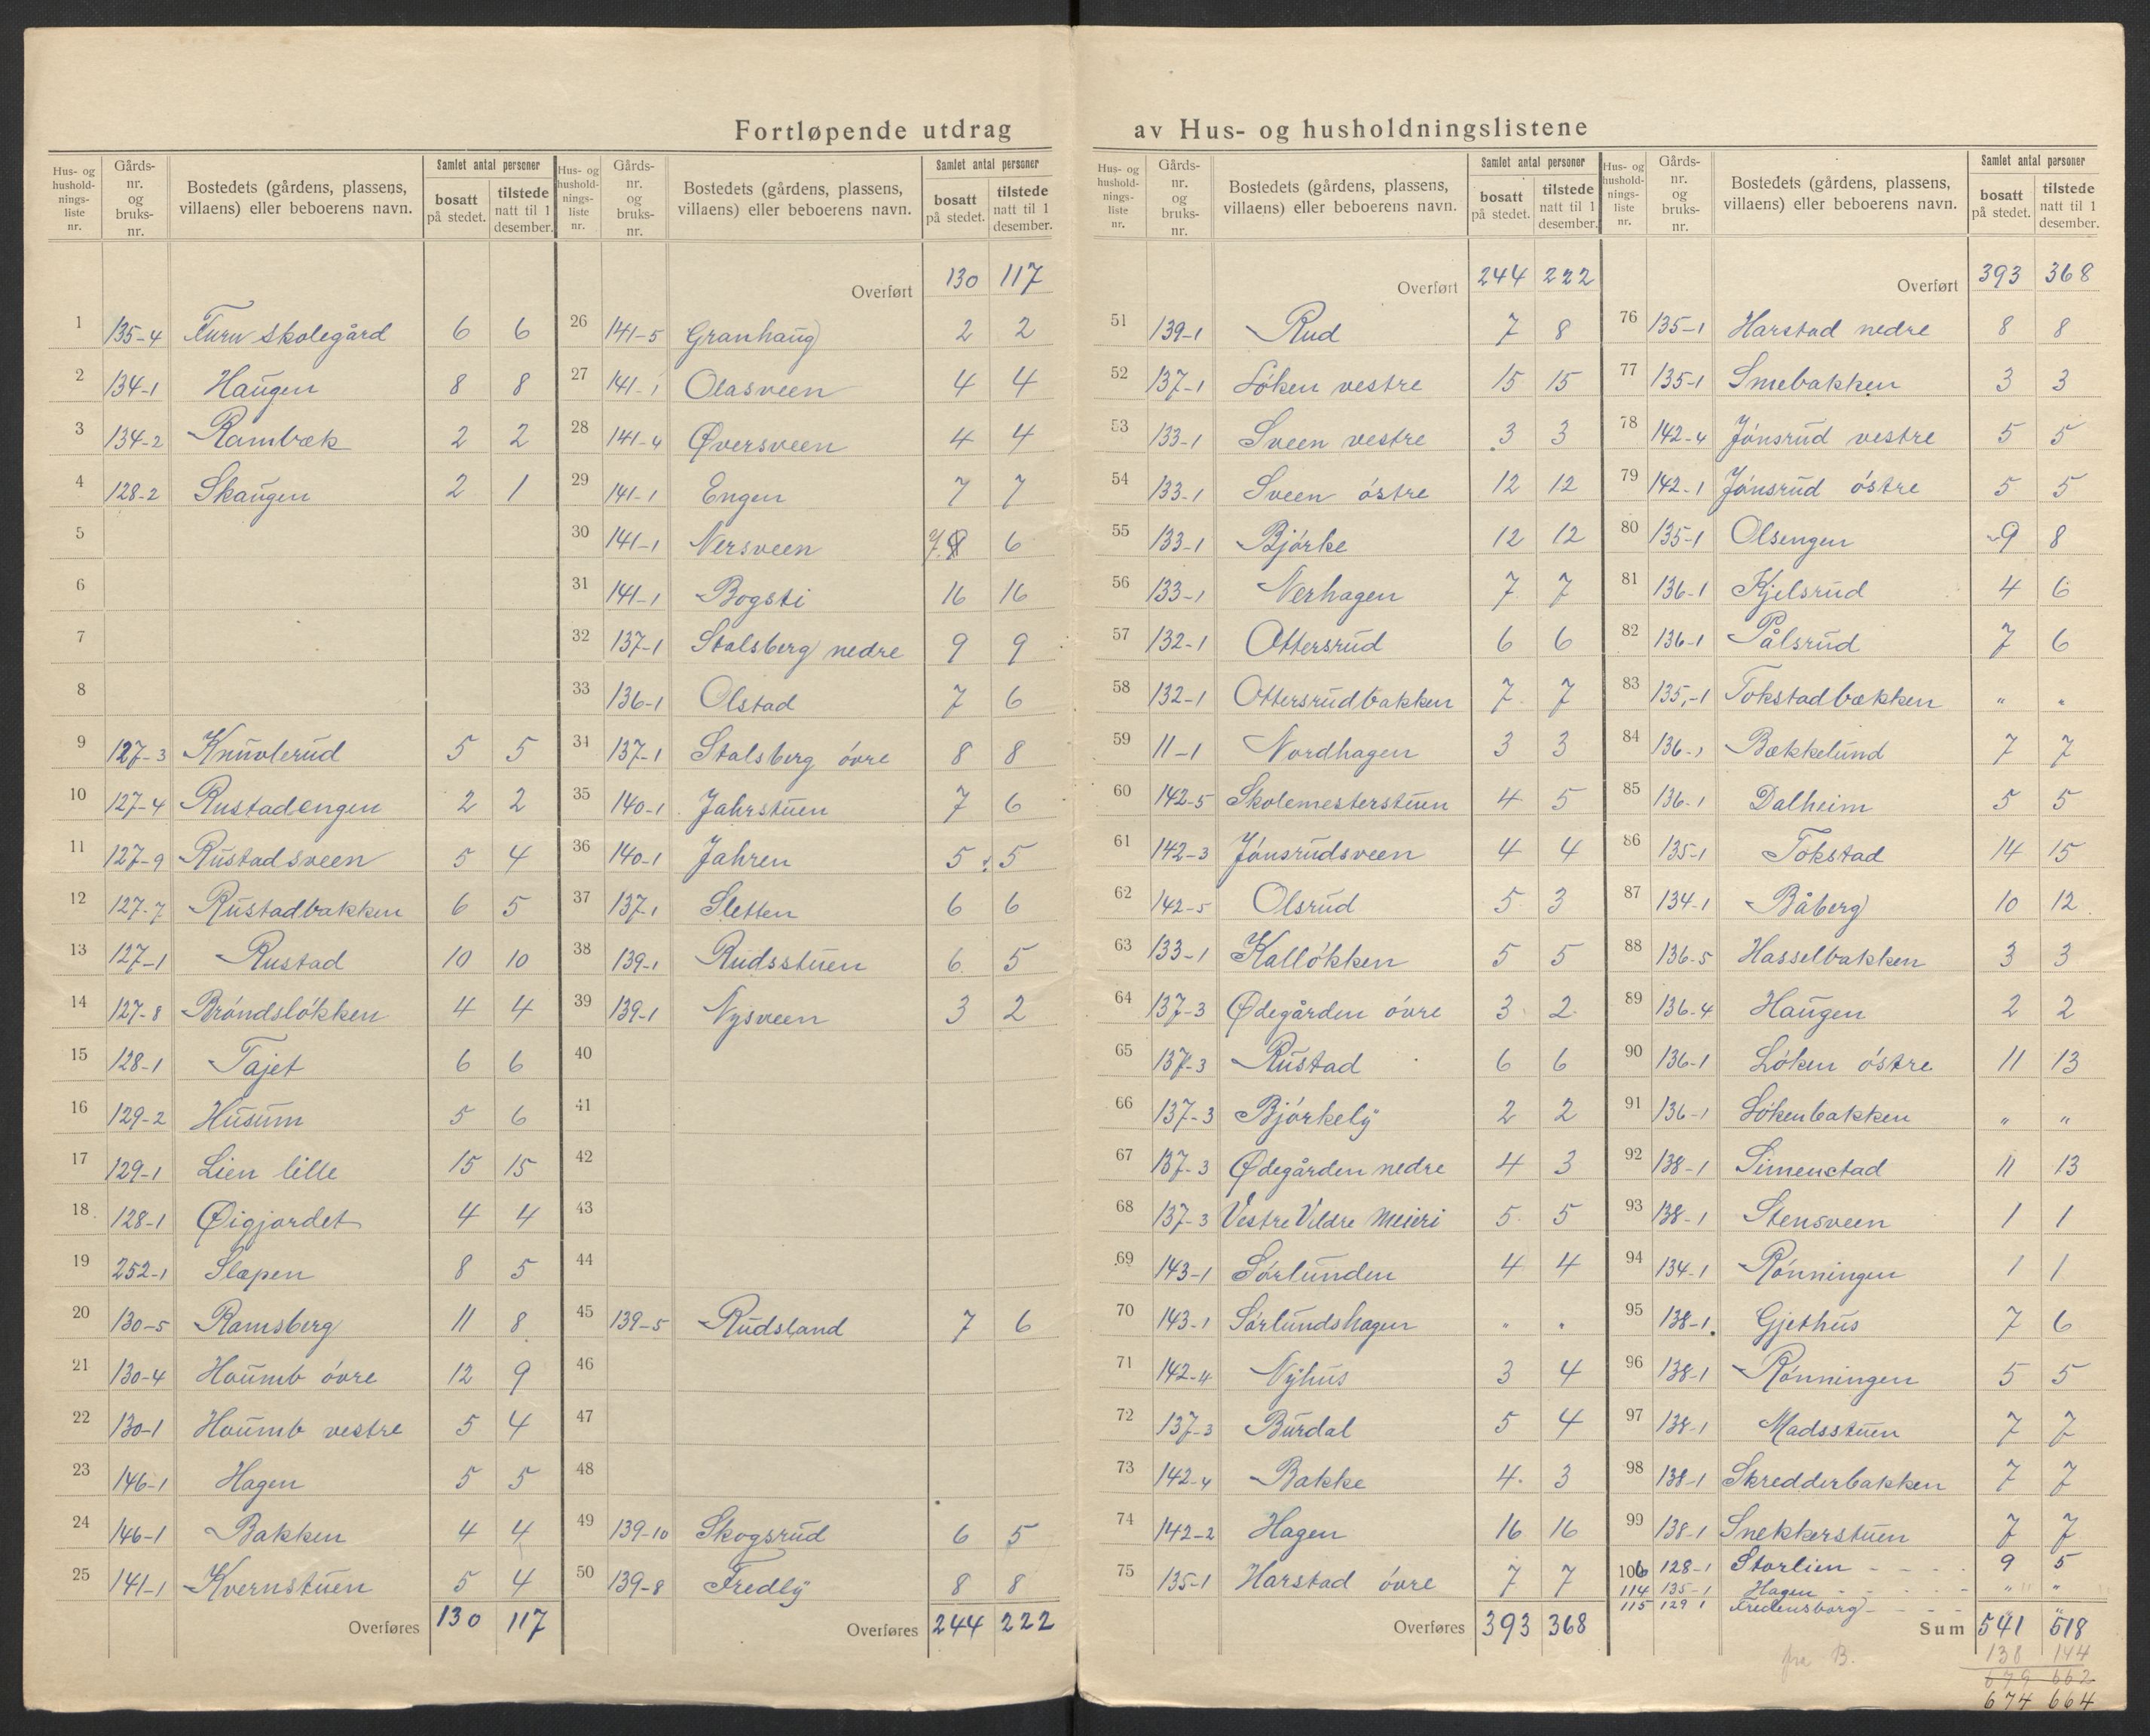 Fortløpende utdrag av Hus- og husholdningslistene
Hus- og hushold-nings-liste nr. | Gårds-nr. og bruks-nr. | Bostedets (gårdens, plassens, villaens) eller beboerens navn. | Samlet antal personer | bosatt på stedet. | tilstede natt til 1 desember.
1 135-4 Furu skolegård 6 6
2 134-1 Haugen 8 8
3 134-2 Rambæk 2 2
4 128-2 Skaugen 2 1
5
6
7
8
9 127-3 Knuvlerud 5 5
10 127-4 Rustadengen 2 2
11 127-9 Rustadsveen 5 4
12 127-7 Rustadbakken 6 5
13 127-1 Rustad 10 10
14 127-8 Brøndsløkken 4 4
15 128-1 Tajet 6 6
16 129-2 Husum 5 6
17 129-1 Lien lille 15 15
18 128-1 Øigjordet 4 4
19 252-1 Slapen 8 5
20 130-5 Ramsberg 11 8
21 130-4 Houmb øvre 12 9
22 130-1 Houmb vestre 5 4
23 146-1 Hagen 5 5
24 146-1 Bakken 4 4
25 141-1 Kvernstuen 5 4
Overføres 130 117
Hus- og hushold-nings-liste nr. | Gårds-nr. og bruks-nr. | Bostedets (gårdens, plassens, villaens) eller beboerens navn. | Samlet antal personer | bosatt på stedet. | tilstede natt til 1 desember.
Overført 130 117
26 141-5 Granhaug 2 2
27 141-1 Olasveen 4 4
28 141-4 Øversveen 4 4
29 141-1 Engen 7 7
30 141-1 Nersveen 7 8 6
31 141-1 Bogsti 16 16
32 137-1 Stalsberg nedre 9 9
33 136-1 Olstad 7 6
34 137-1 Stalsberg øvre 8 8
35 140-1 Jahrstuen 7 6
36 140-1 Jahren 5 5
37 137-1 Sletten 6 6
38 139-1 Rudsstuen 6 5
39 139-1 Nysveen 3 2
40
41
42
43
44
45 139-5 Rudsland 7 6
46
47
48
49 139-10 Skogsrud 6 5
50 139-8 Fredly 8 8
Overføres 244 222
Hus- og hushold-nings-liste nr. | Gårds-nr. og bruks-nr. | Bostedets (gårdens, plassens, villaens) eller beboerens navn. | Samlet antal personer | bosatt på stedet. | tilstede natt til 1 desember.
Overført 244 222
51 139-1 Rud 7 8
52 137-1 Løken vestre 15 15
53 133-1 Sveen vestre 3 3
54 133-1 Sveen østre 12 12
55 133-1 Bjørke 12 12
56 133-1 Nerhagen 7 7
57 132-1 Ottersrud 6 6
58 132-1 Ottersrudbakken 7 7
59 11-1 Nordhagen 3 3
60 142-5 Skolemesterstuen 4 5
61 142-3 Jønsrudsveen 4 4
62 142-5 Olsrud 5 3
63 133-1 Kalløkken 5 5
64 137-3 Ødegården øvre 3 2
65 137-3 Rustad 6 6
66 137-3 Bjørkely 2 2
67 137-3 Ødegården nedre 4 3
68 137-3 Vestre Vildre Meieri 5 5
69 143-1 Sørlunden 4 4
70 143-1 Sørlundshagen " "
71 142-4 Nyhus 3 4
72 137-3 Burdal 5 4
73 142-4 Bakke 4 3
74 142-2 Hagen 16 16
75 135-1 Harstad øvre 7 7
Overføres 393 368
Hus- og hushold-nings-liste nr. | Gårds-nr. og bruks-nr. | Bostedets (gårdens, plassens, villaens) eller beboerens navn. | Samlet antal personer | bosatt på stedet. | tilstede natt til 1 desember.
Overført 393 368
76 135-1 Harstad nedre 8 8
77 135-1 Smebakken 3 3
78 142-4 Jønsrud vestre 5 5
79 142-1 Jønsrud østre 5 5
80 135-1 Olsengen 9 8
81 136-1 Kjelsrud 4 6
82 136-1 Pålsrud 7 6
83 135-1 Tokstadbakken " "
84 136-1 Bækkelund 7 7
85 136-1 Dalheim 5 5
86 135-1 Tokstad 14 15
87 134-1 Båberg 10 12
88 136-5 Hasselbakken 3 3
89 136-4 Haugen 2 2
90 136-1 Løken østre 11 13
91 136-1 Løkenbakken " "
92 138-1 Simenstad 11 13
93 138-1 Stensveen 1 1
94 134-1 Rønningen 1 1
95 138-1 Gjethus 7 6
96 138-1 Rønningen 5 5
97 138-1 Madsstuen 7 7
98 138-1 Skredderbakken 7 7
99 138-1 Snekkerstuen 7 7
106 128-1 Storlien - - - 9 5
114 135-1 Hagen - - - - " "
115 129 1 Fredensborg - - - " "
Sum 541 518
fra B. 138 144
679 662
674 664